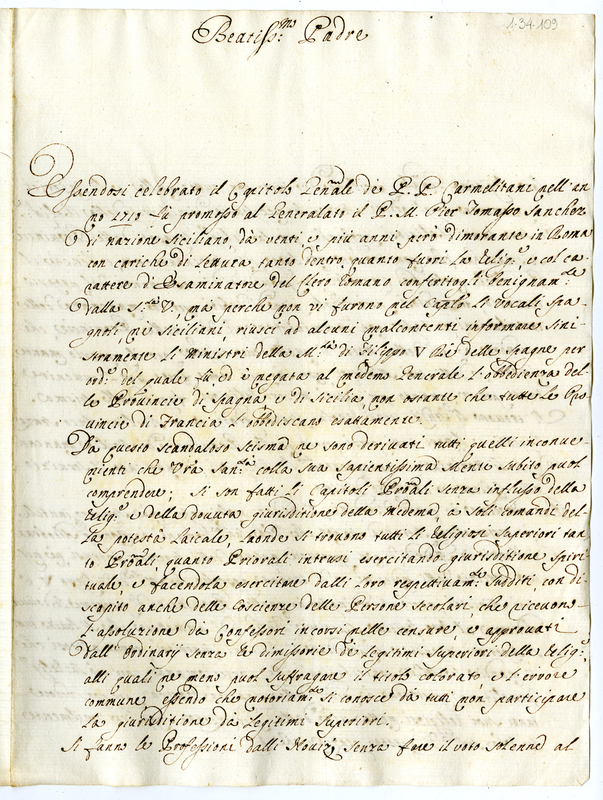 1-34-109
Beatiss.mo Padre
Essendosi celebrato il Capitolo Gen̄ale de P. P. Carmelitani nell'an
no 1710 fù promosso al Generalato il P. M. Pier Tomasso Sanchez
di nazione Siciliano, dà venti e più anni però dimorante in Roma
con cariche di Lettura tanto dentro, quanto fuori la Relig.e e col ca
rattere d'Esaminatore del Clero Romano conferitogli benignam.te
dalla S.tà V., ma perche non vi furono nel Caplo li Vocali Spa
gnoli, ne Siciliani riusci ad alcuni malcontenti informare Sini
stramente li Ministri della M.tà di Filippo V Rè delle Spagne per
ord.e del quale fù ed è negata al medemo Generale l'obbedienza del
le Provincie di Spagna e di Sicilia, non ostante che tutte le Pro
vincie di Francia l'obbediscano esattamente.
Dà questo scandaloso Scisma ne sono derivati tutti quelli inconve
nienti che V̄ra San.tà colla sua Sapientissima Mente subito puol
comprendere; Si son fatti li Capitoli Prōali senza influsso della
Relig.e e della dovuta giurisditione della medema, à soli comandi del
la potestà laicale, laonde si trovono tutti li Religiosi Superiori tan
to Prōali, quanto Priorali intrusi esercitando giurisditione spiri
tuale, e facendola esercitare dalli loro respettivam.te Sudditi, con di
scapito anche delle Coscienze delle Persone Secolari, che ricevono
l'assoluzione dà Confessori incorsi nelle censure, e approvati
dall'Ordinarij senza le dimissorie de Legitimi Superiori della Relig.e
alli quali ne meno puol suffragare il titolo colorato, e l'errore
commune essendo che notoriam.te si conosce dà tutti non participare
la giurisditione dà Legitimi Superiori.
Si fanno le Professioni dalli Novizj senza fare il voto solenne al